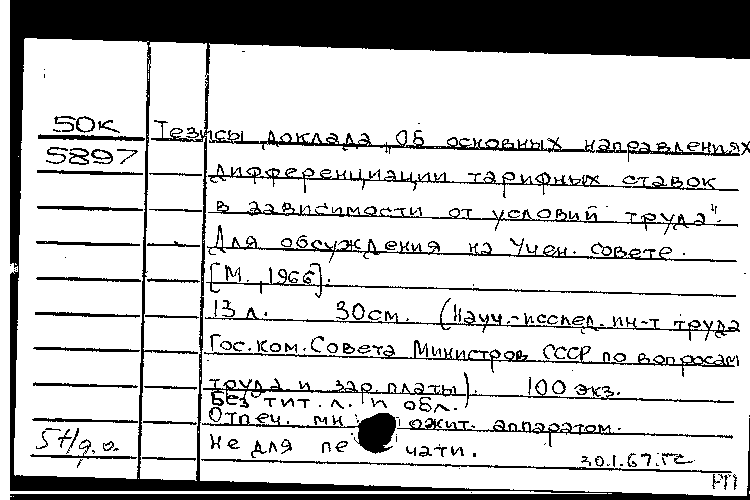 50К
5897
Тезисы доклада „Об основных направлениях
дифференциации тарифных ставок
в зависимости от условий труда".
Для обсуждения на Учен. совете.
[М., 1966].
13 л. 30см. (Науч.-исслед. ин-т труда
Гос.ком.Совета Министров СССР по вопросам
труда и зар.платы). 100 экз.
Без тит. л. и обл.
Отпеч. мн ожит. аппаратом.
Не для пе чати.
РП